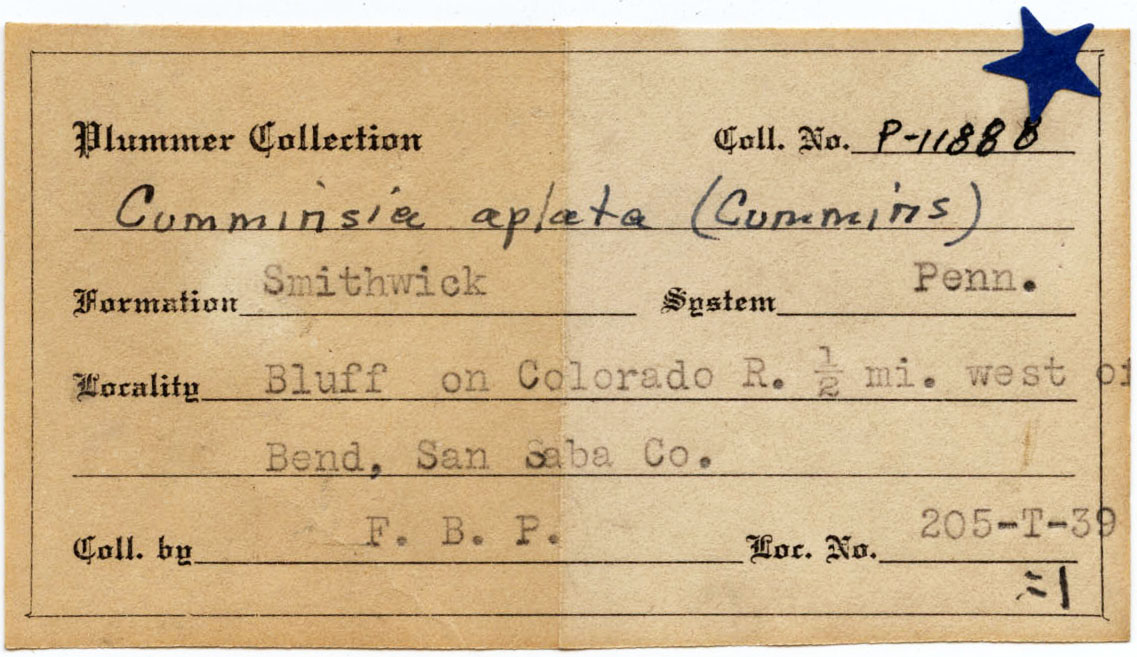 Plummer Collection Coll. No. P-11888
Cumminsia aplata (Cummins)
Formation Smithwick System Penn.
Locality Bluff on Colorado R. ½ mi. west of
Bend, San Saba Co.
Coll. by F. B. P. Loc. No. 205-T-39
=1